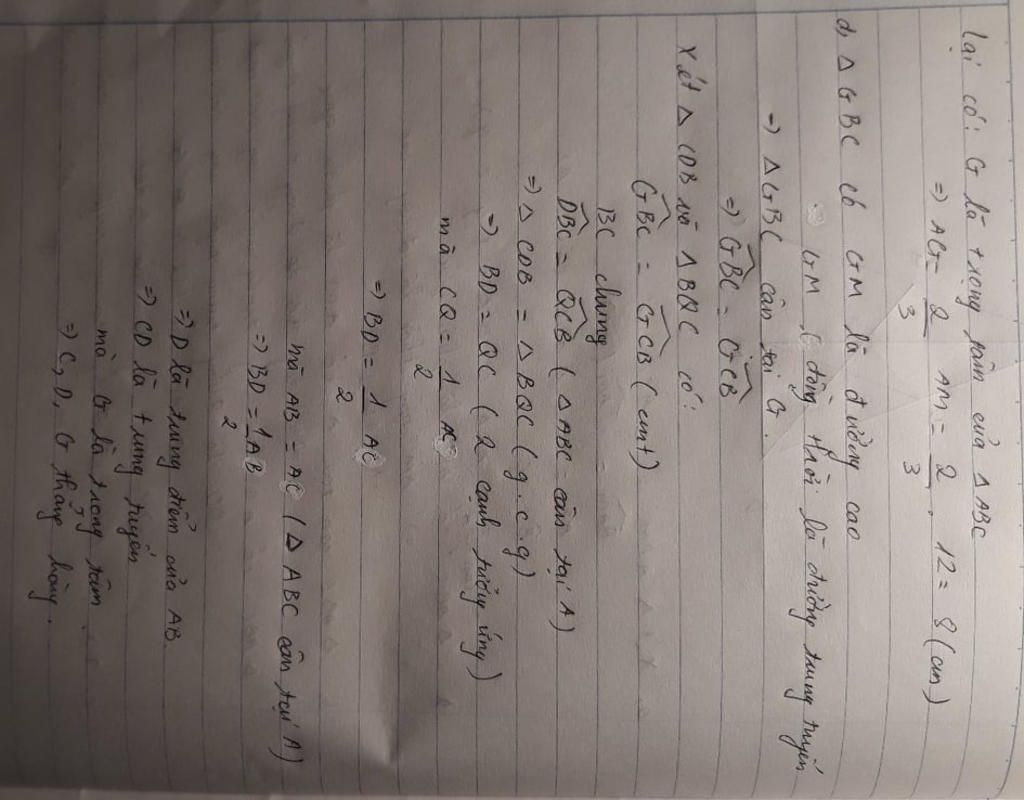 lại có: G là trọng tâm của △ABC
=> AG = 2/3 AM = 2/3 . 12 = 8 (cm)
d, △GBC có GM là đường cao
GM đồng thời là đường trung tuyến
=> △GBC cân tại G.
=> \widehat{GBC} = \widehat{GCB}
Xét △CDB và △BQC có:
\widehat{GBC} = \widehat{GCB} (cmt)
BC chung
\widehat{DBC} = \widehat{QCB} (△ABC cân tại A)
=> △CDB = △BQC (g.c.g)
=> BD = QC (2 cạnh tương ứng)
mà CQ = 1/2 AC
=> BD = 1/2 AC
mà AB = AC (△ABC cân tại A)
=> BD = 1/2 AB
=> D là trung điểm của AB.
=> CD là trung tuyến
mà G là trọng tâm
=> C, D, G thẳng hàng.